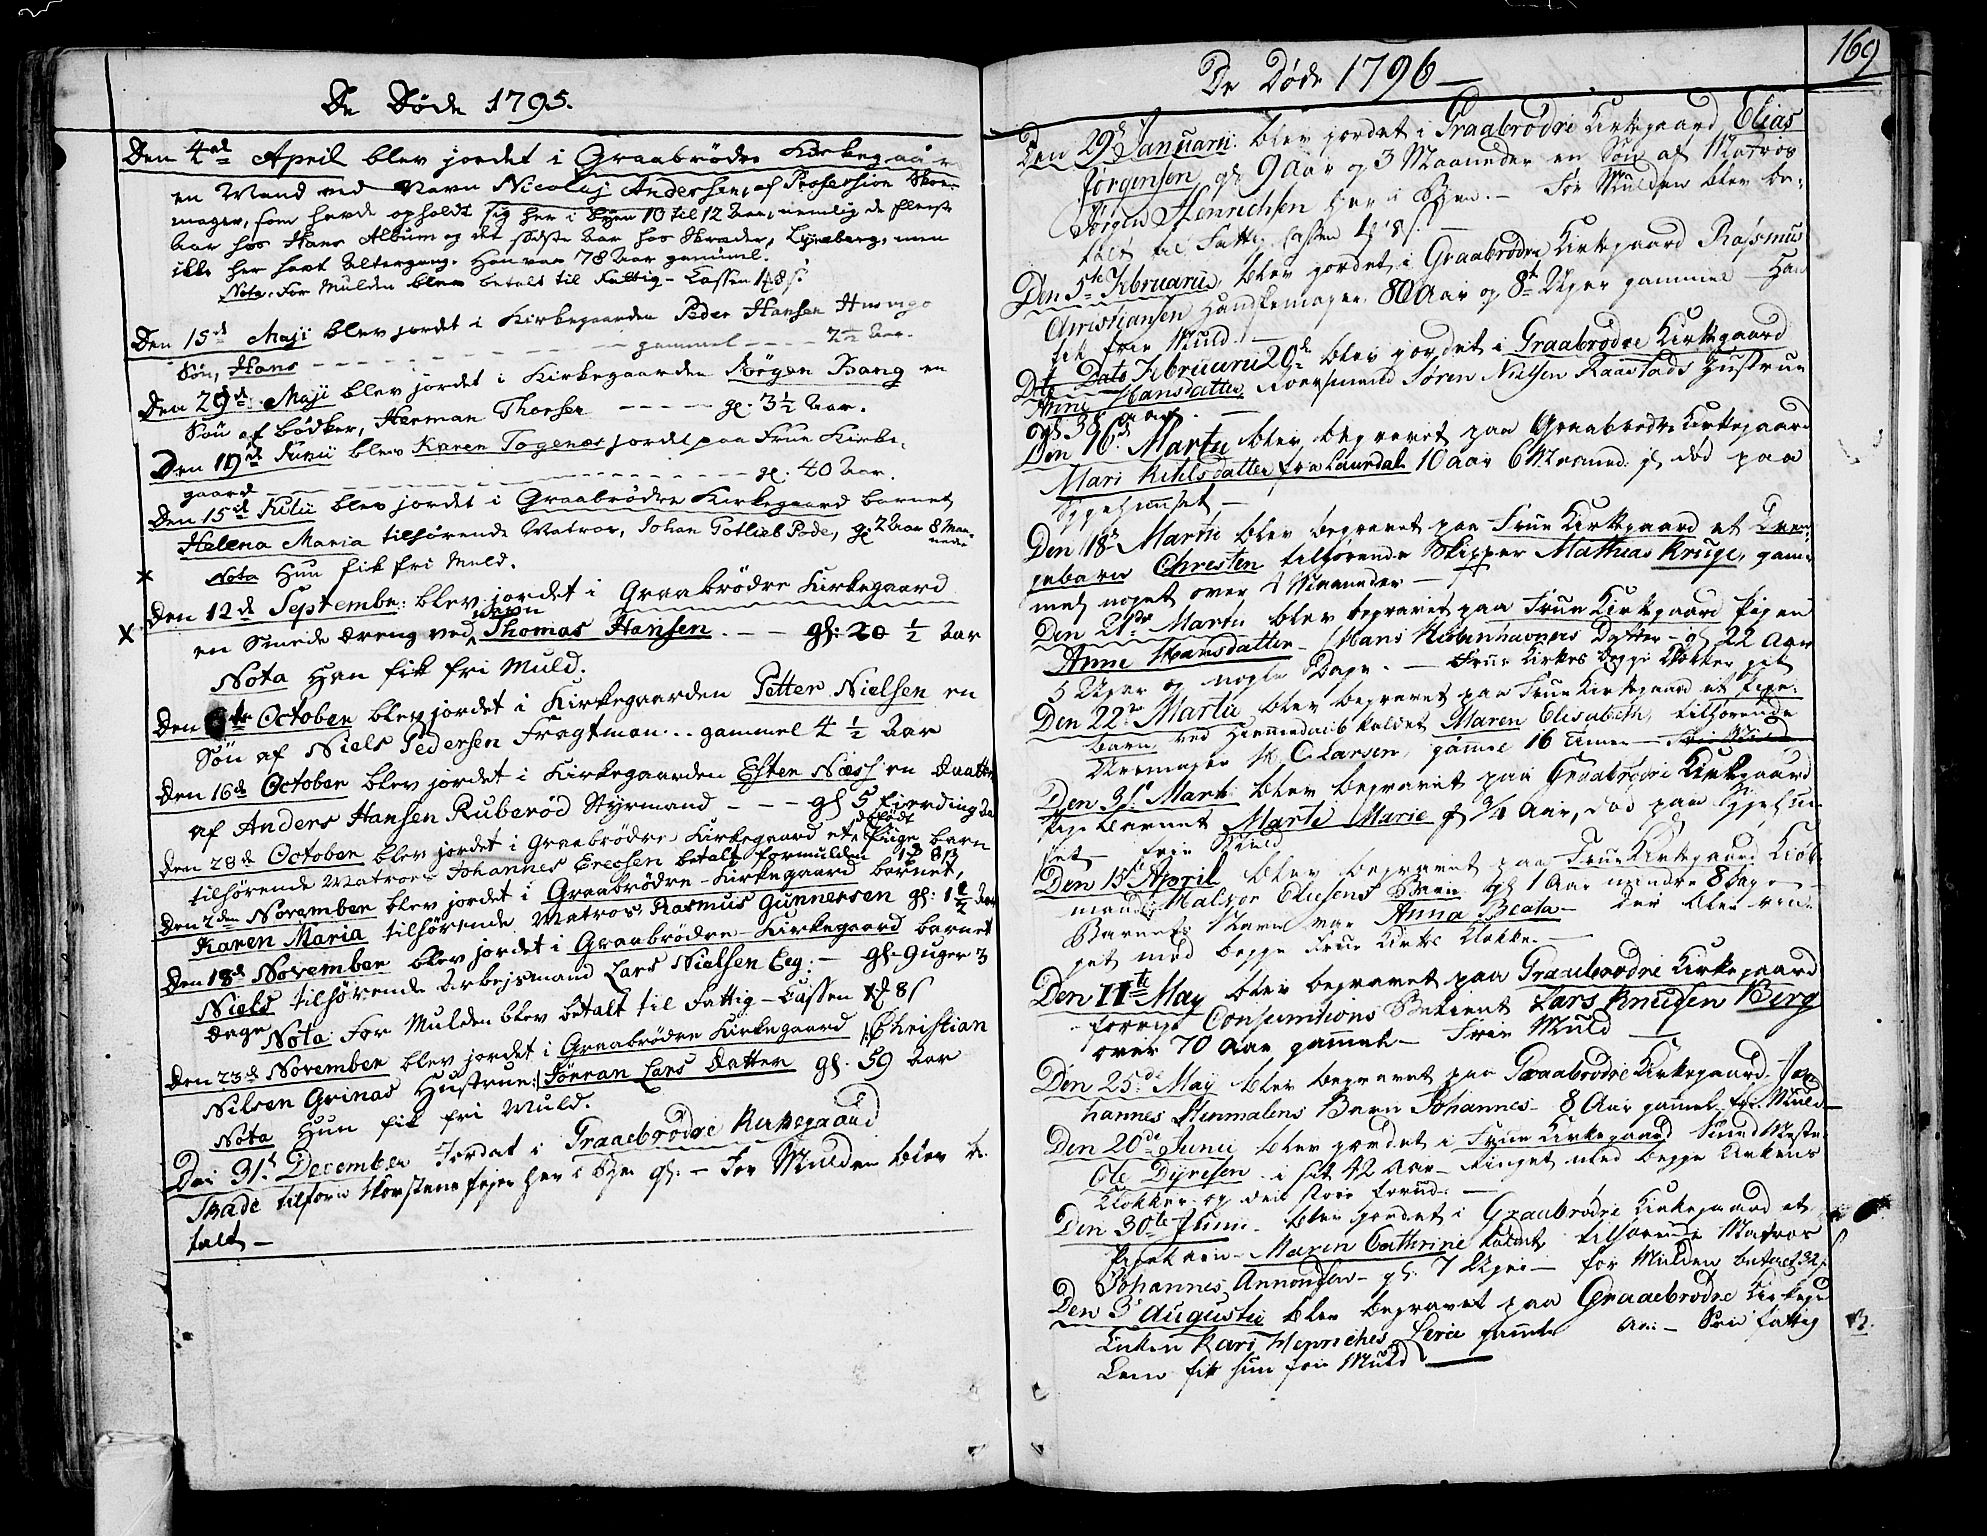 De Døde 1795.
Den 4de April blev jordet i Graabrödre Kirkegaar
en Mand ved Navn Nicolaj Andersen, af Profession Skoe-
mager, som havde opholdt sig her i Byen 10 til 12 Aar, nemlig de fleeste
Aar hos Hans Album og det sidste Aar hos Skræder Lyneberg, men
ikke her havt Altergang. Han var 78 Aar gammel.
Nota. For Mulden blev betalt til Fattig-Cassen 8 s.
Den 15de Maji blev jordet i Kirkegaarden Peder Hansen
Søn, Hans gammel 2½ Aar.
Den 29de Maji blev jordet i Kirkegaarden Jörgen Bang en
Søn af Bødker, Herman Thorsen gl. 3½ Aar.
Den 19de Junii blev Karen Togenæs jordt paa Frue Kirke-
gaard gl. 40 Aar.
Den 15de Julii blev jordet i Graabrödre Kirkegaard barnet
Helena Maria tilhörende Matros, Johan Gotlieb Pode, gl 2 Aar 8 Maa-
neder
Nota Hun fik fri Muld.
Den 12de Septembr: blev jordet i Graabrödre Kirkegaard
en Smede dreng ved Navn Thomas Hansen. gl: 20 ½ Aar
Nota Han fik fri Muld.
Den 6te October blev jordet i Kirkegaarden Petter Nielsen en
Søn af Niels Pedersen Fragtman... gammel 4 ½ Aar
Den 16de October blev jordet i Kirkegaarden Esten Næss en Daatter
af Anders Hansen Ruberød Styrmand gl 5 fierding
Den 28de October blev jordet i Graabrödre Kirkegaard et dødfødt Pige barn
tilhörende Matros Johannes Erecsen betalt for mulden 8 s
Den 2den November blev jordet i Graabrödre-Kirkegaard barnet,
Karen Maria tilhörende Matros Rasmus Gunnersen gl: 1½ Aar
Den 18de November blev jordet i Graabrödre-Kirkegaard barnet
Niels tilhörende Arbejsmand Lars Nielsen Eeg: gl. 9 uger 3
dage Nota: For Mulden blev betalt til Fattig-Cassen 8 s
Den 23de November blev jordet i Graabrödre Kirkegaard /:Christian
Nilsen Grinas Hustrue:/ Jörran Lars Datter gl. 59 Aar
Nota Hun fik fri Muld.
Den 31te December Jordat i Graaebrødre Kirkegaard
tilforn Skorsteensfejer her i Byen gl: - For Mulden blev be-
talt -
De Døde 1796 -
169
Den 29de Januarii blev jordet i Graabrødre Kirkegaard Elias
Jørgensen gl 9 Aar og 3 Maaneder en Søn af Matros
Jörgen Henrichsen her i Byen. - For Mulden blev be-
talt til Fattig Cassen 8 s.
Den 5te Februarii blev jordet i Graabrødre Kirkegaard Rasmus
Christiansen Handskemager 80 Aar og 8te Uger gammel Han
fik frie Muld.
Dito Dato Februarii 20de blev jordet i Graabrødre Kirkegaard
Anne Hansdatter Søren Nielsen Raastads Hustrue
gl 38 aar.
Den 16de Martii blev begravet paa Graabrødre Kirkegaard
Mari Kihlsdatter fra Laurdal 10 aar 6 Maaned: gl død paa
Sygehuuset -
Den 18de Martii blev begravet paa Frue Kirkegaard et Dren-
gebarn Christen tilhørende Skipper Mathias Kruge, gam-
mel noget over 4 Maaneder -
Den 21de Martii blev begravet paa Frue Kirkegaard Pigen
Anne Hansdatter Hans Kiöbenhavners Datter - gl 22 Aar
5 Uger og nogle Dage. - Frue Kirkes begge Klokker
Den 22de Martii blev begravet paa Frue Kirkegaard et Pige-
barn ved Hiemmedaab kaldet Maren Elisabeth, tilhørende
Uremager C Larsen, gamle 16 Timer - frie Muld
Den 31te Martii blev begravet paa Graabrødre Kirkegaard
Pigebarnet Marte Marie gl ¾ Aar, død paa Sygehuu-
set - frie Muld
Den 15de April blev begravet paa Frue Kirkegaard Kiøb-
mand Halvor Olusens Barn gl 1 Aar mindre 8 Dage -
Barnets Navn var Anna Beata - der blev rin-
get med begge Frue Kirke Klokker. -
Den 11te May blev begravet paa Graaebrødre Kirkegaard
forrige Consumtions Betient Lars Knudsen Berg
over 70 Aar gammel - Frie Muld
Den 25de May blev begravet paa Graabrødre Kirkegaard Jo-
hannes Steenmalens Barn Johannes - 8 Aar gammel fri Muld
Den 20de Junii blev jordet i Frue Kirkegaard Smed Mester
Ole Dyresen i sit 42 Aar - Ringet med begge Kirkens
Klokker og den store forud. -
Den 30te Junii blev jordet i Graabrødre Kirkegaard et
Pigebarn - Maren Cathrine kaldet tilhørende Matros
Johannes Annondsen - gl: 7 Uger - for Mulden betalet 32 s.
Den 3de Augustii blev begravet paa Graaebrødre Kirkega
Enken Kari Henriches gamle Aar - Som fattig
Lem fik hun frie Muld